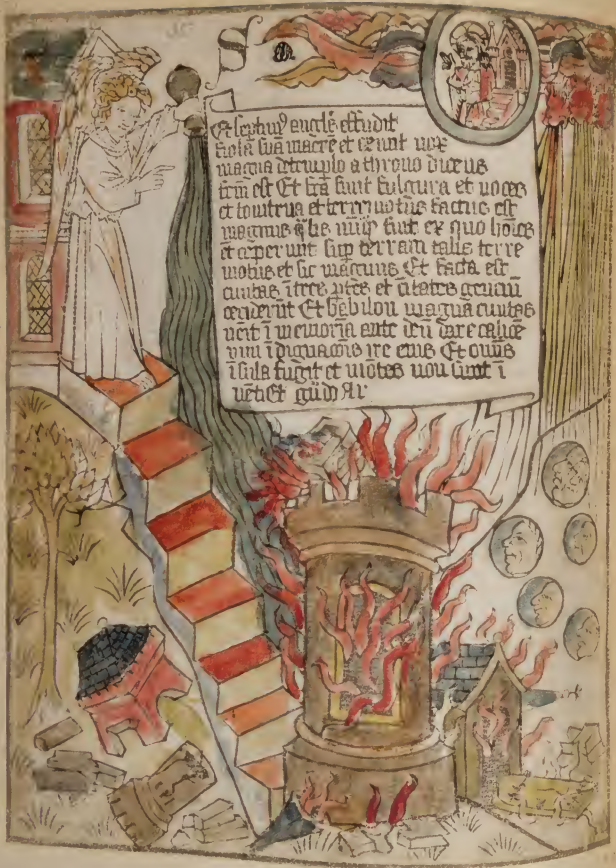 S
Et septimꝰ angls̄ effudit
fiola suā in aere et exivit vox
magna de templo a throno dicens
fctm̄ est Et fcā sunt fulgura et voces
et tonitrua et terremotus factus est
magnus q̄lis nūqͣ fuit ex quo hoīes
ceperunt sup terram talis terre
motus et sic magnus Et facta est
civitas ī tres ptēs et civitates genciū
ceciderūt Et babilon magna civitas
venit ī memoriā ante deū dare calicē
vini ī dignacōnis ire eius Et omīs
īsula fugit et mōtes non sunt ī
vēti Et